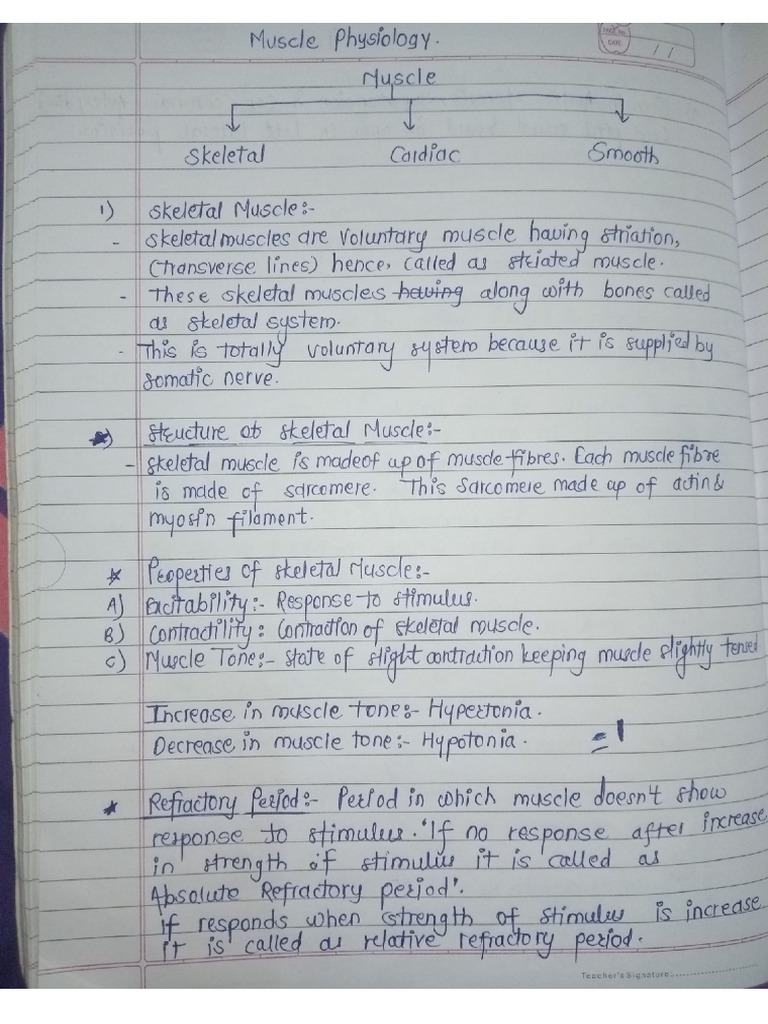 Muscle Physiology.
PAGE NO.
DATE
/ /
Muscle
Skeletal Cardiac Smooth
1) Skeletal Muscle:-
- Skeletal muscles are Voluntary muscle having striation,
(transverse lines) hence, called as striated muscle.
- These skeletal muscles having along with bones called
as skeletal system.
- This is totally voluntary system because it is supplied by
somatic nerve.
Structure of skeletal Muscle:-
- Skeletal muscle is madeof up of muscle fibres. Each muscle fibre
is made of sarcomere. This Sarcomere made up of actin &
myosin filament.
* Properties of skeletal Muscle:-
A) Excitability:- Response to stimulus.
B) Contractility: Contraction of skeletal muscle.
C) Muscle Tone:- State of slight contraction keeping muscle slightly tensed
Increase in muscle tone:- Hypertonia.
Decrease in muscle tone:- Hypotonia.
* Refractory Period:- Period in which muscle doesn't show
response to stimulus. 'If no response after increase
in strength of stimulus it is called as
Absolute Refractory period'.
if responds when strength of stimulus is increase
it is called as relative refractory period.
Teacher's Signature